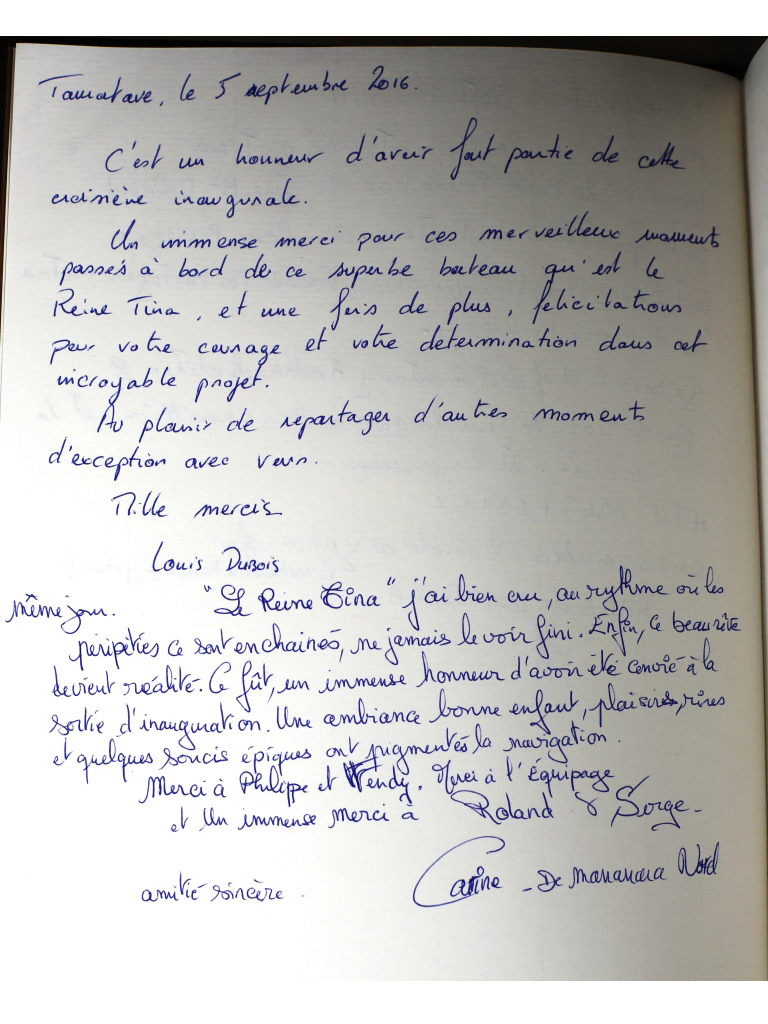 Tamatave, le 5 septembre 2016.
C'est un honneur d'avoir fait partie de cette
croisière inaugurale.
Un immense merci pour ces merveilleux moments
passés à bord de ce superbe bateau qu'est le
Reine Tina, et une fois de plus, felicitations
pour votre courage et votre determination dans cet
incroyable projet.
Au plaisir de repartager d'autres moments
d'exception avec vous.
Mille mercis
Louis Dubois
même jour. "Le Reine Tina" j'ai bien cru, au rythme où les
péripéties ce sont enchainés, ne jamais le voir fini. Enfin, ce beau rêve
devient réalité. Ce fût, un immense honneur d'avoir été convié à la
sortie d'inauguration. Une ambiance bonne enfant, plaisirs, rires
et quelques soucis épiques ont pigmentés la navigation.
Merci à Philippe et Wendy. Merci à l'Équipage
et Un immense merci à Roland & Serge_
amitié sincère. Carine _ De Mananara Nord